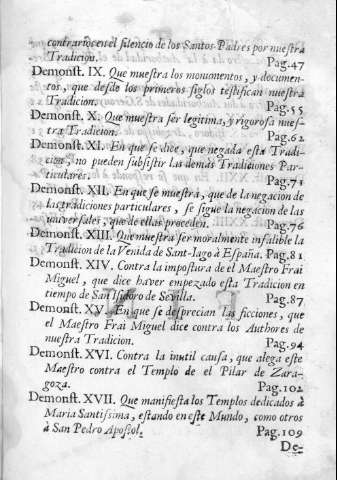 contrario, en el silencio de los Santos Padres por nuestra
Tradicion. Pag.47
Demonst. IX. Que muestra los monumentos, y documen-
tos, que desde los primeros siglos testifican nuestra
Tradicion. Pag.55
Demonst. X. Que muestra ser legitima, y rigorosa nues-
tra Tradicion. Pag.62
Demonst. XI. En que se dice, que negada esta Tradi-
cion, no pueden subsistir las demás Tradiciones Par-
ticulares. Pag.71
Demonst. XII. En que se muestra, que de la negacion de
las tradiciones particulares, se sigue la negacion de las
universales, que de ellas proceden. Pag.76
Demonst. XIII. Que muestra ser moralmente infalible la
Tradicion de la Venida de Sant-Iago à España. Pag.81
Demonst. XIV. Contra la impostura de el Maestro Frai
Miguel, que dice haver empezado esta Tradicion en
tiempo de San Isidoro de Sevilla. Pag.87
Demonst. XV. En que se desprecian las ficciones, que
el Maestro Frai Miguel dice contra los Authores de
nuestra Tradicion. Pag.94
Demonst. XVI. Contra la inutil causa, que alega este
Maestro contra el Templo de el Pilar de Zara-
goza. Pag.102
Demonst. XVII. Que manifiesta los Templos dedicados à
Maria Santissima, estando en este Mundo, como otros
à San Pedro Apostol. Pag.109
De-